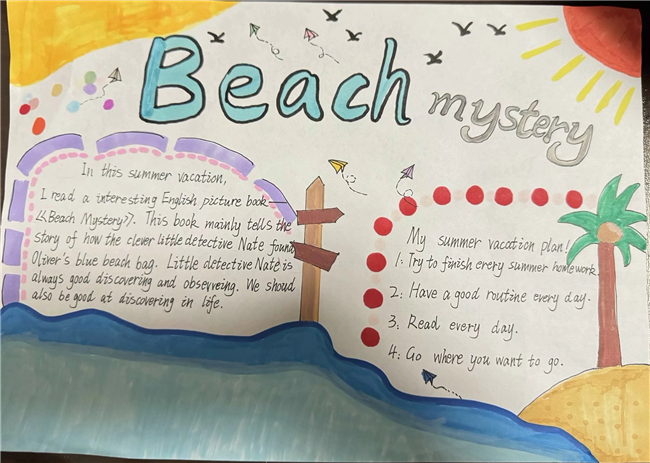 Beach
mystery
In this summer vacation,
I read a interesting English picture book—
《Beach Mystery》. This book mainly tells the
story of how the clever little detective Nate found
Oliver's blue beach bag. Little detective Nate is
always good discovering and obseveing. We shoud
also be good at discovering in life.
My summer vacation plan!
1: Try to finish erery summer homework.
2: Have a good routine every day.
3: Read every day.
4: Go where you want to go.